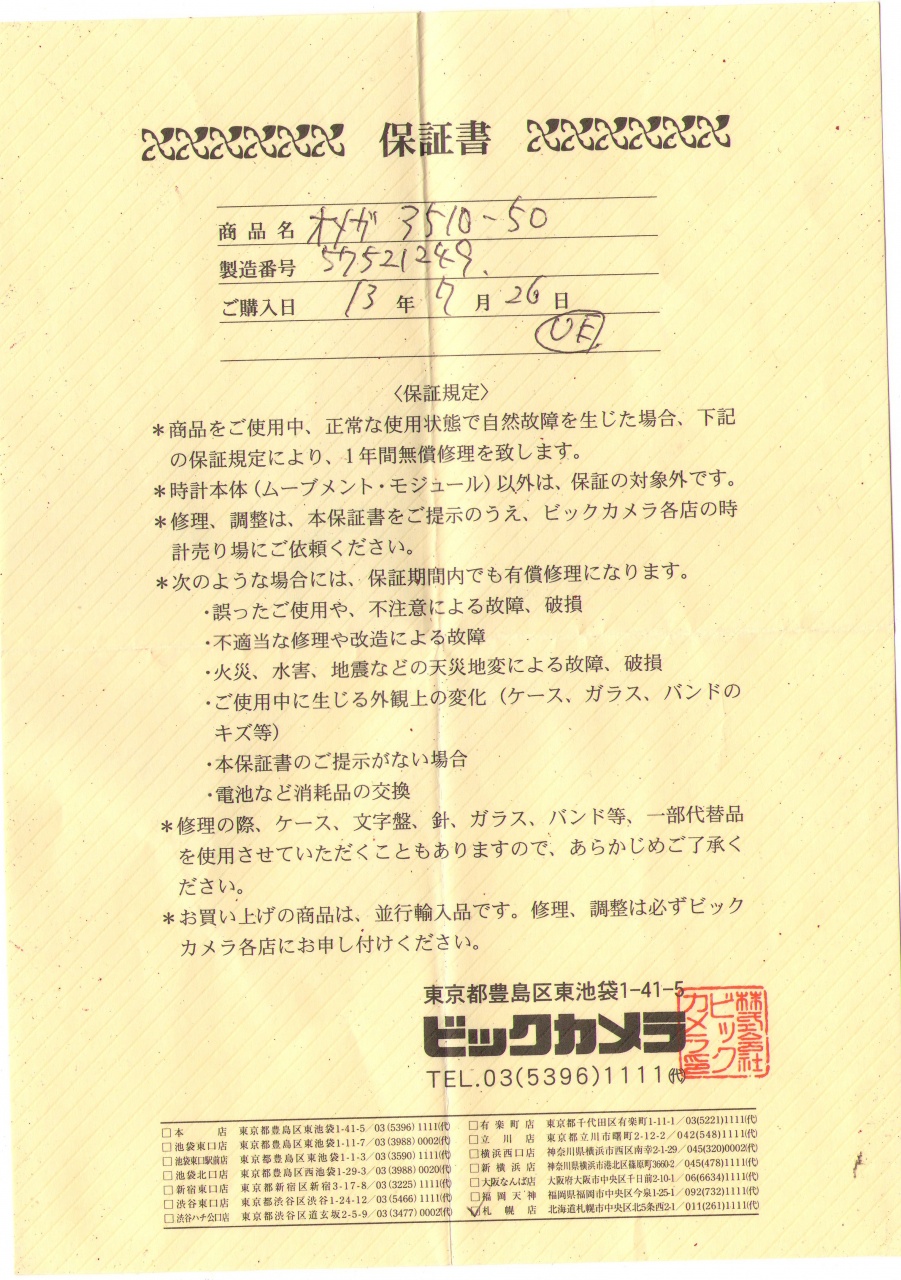 保証書
商品名 オメガ 3510-50
製造番号 57521249.
ご購入日 13 年 7 月 26 日
〈保証規定〉
＊商品をご使用中、正常な使用状態で自然故障を生じた場合、下記
の保証規定により、1年間無償修理を致します。
＊時計本体（ムーブメント・モジュール）以外は、保証の対象外です。
＊修理、調整は、本保証書をご提示のうえ、ビックカメラ各店の時
計売り場にご依頼ください。
＊次のような場合には、保証期間内でも有償修理になります。
・誤ったご使用や、不注意による故障、破損
・不適当な修理や改造による故障
・火災、水害、地震などの天災地変による故障、破損
・ご使用中に生じる外観上の変化（ケース、ガラス、バンドの
キズ等）
・本保証書のご提示がない場合
・電池など消耗品の交換
＊修理の際、ケース、文字盤、針、ガラス、バンド等、一部代替品
を使用させていただくこともありますので、あらかじめご了承く
ださい。
＊お買い上げの商品は、並行輸入品です。修理、調整は必ずビック
カメラ各店にお申し付けください。
東京都豊島区東池袋1-41-5
ビックカメラ
TEL.03(5396)1111㈹
株式会社
ビック
カメラ印
□本店 東京都豊島区東池袋1-41-5／03(5396)1111㈹
□池袋東口店 東京都豊島区東池袋1-11-7／03(3988)0002㈹
□池袋東口駅前店 東京都豊島区東池袋1-1-3／03(3590)1111㈹
□池袋北口店 東京都豊島区西池袋1-29-3／03(3988)0020㈹
□新宿東口店 東京都新宿区新宿3-17-8／03(3225)1111㈹
□渋谷東口店 東京都渋谷区渋谷1-24-12／03(5466)1111㈹
□渋谷ハチ公口店 東京都渋谷区道玄坂2-5-9／03(3477)0002㈹
□有楽町店 東京都千代田区有楽町1-11-1／03(5221)1111㈹
□立川店 東京都立川市曙町2-12-2／042(548)1111㈹
□横浜西口店 神奈川県横浜市西区南幸2-1-29／045(320)0002㈹
□新横浜店 神奈川県横浜市港北区篠原町3660-2／045(478)1111㈹
□大阪なんば店 大阪府大阪市中央区千日前2-10-1／06(6634)1111㈹
□福岡天神 福岡県福岡市中央区今泉1-25-1／092(732)1111㈹
☑札幌店 北海道札幌市中央区北5条西2-1／011(261)1111㈹